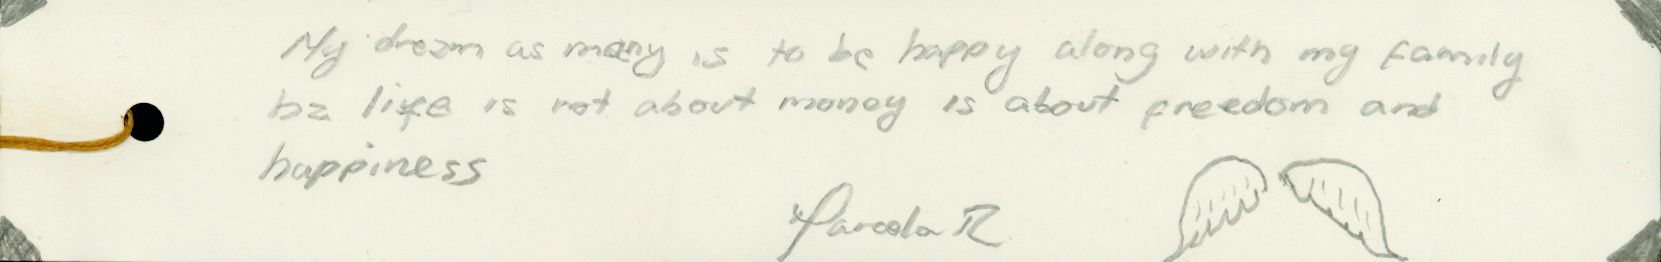 My dream as many is to be happy along with my family
bz life is not about money is about freedom and
happiness
Marcela R